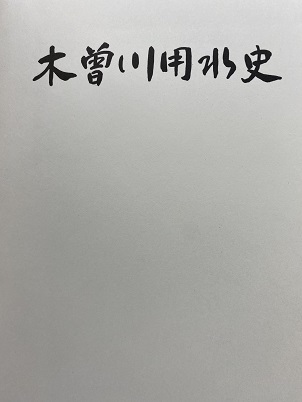 木曽川用水史